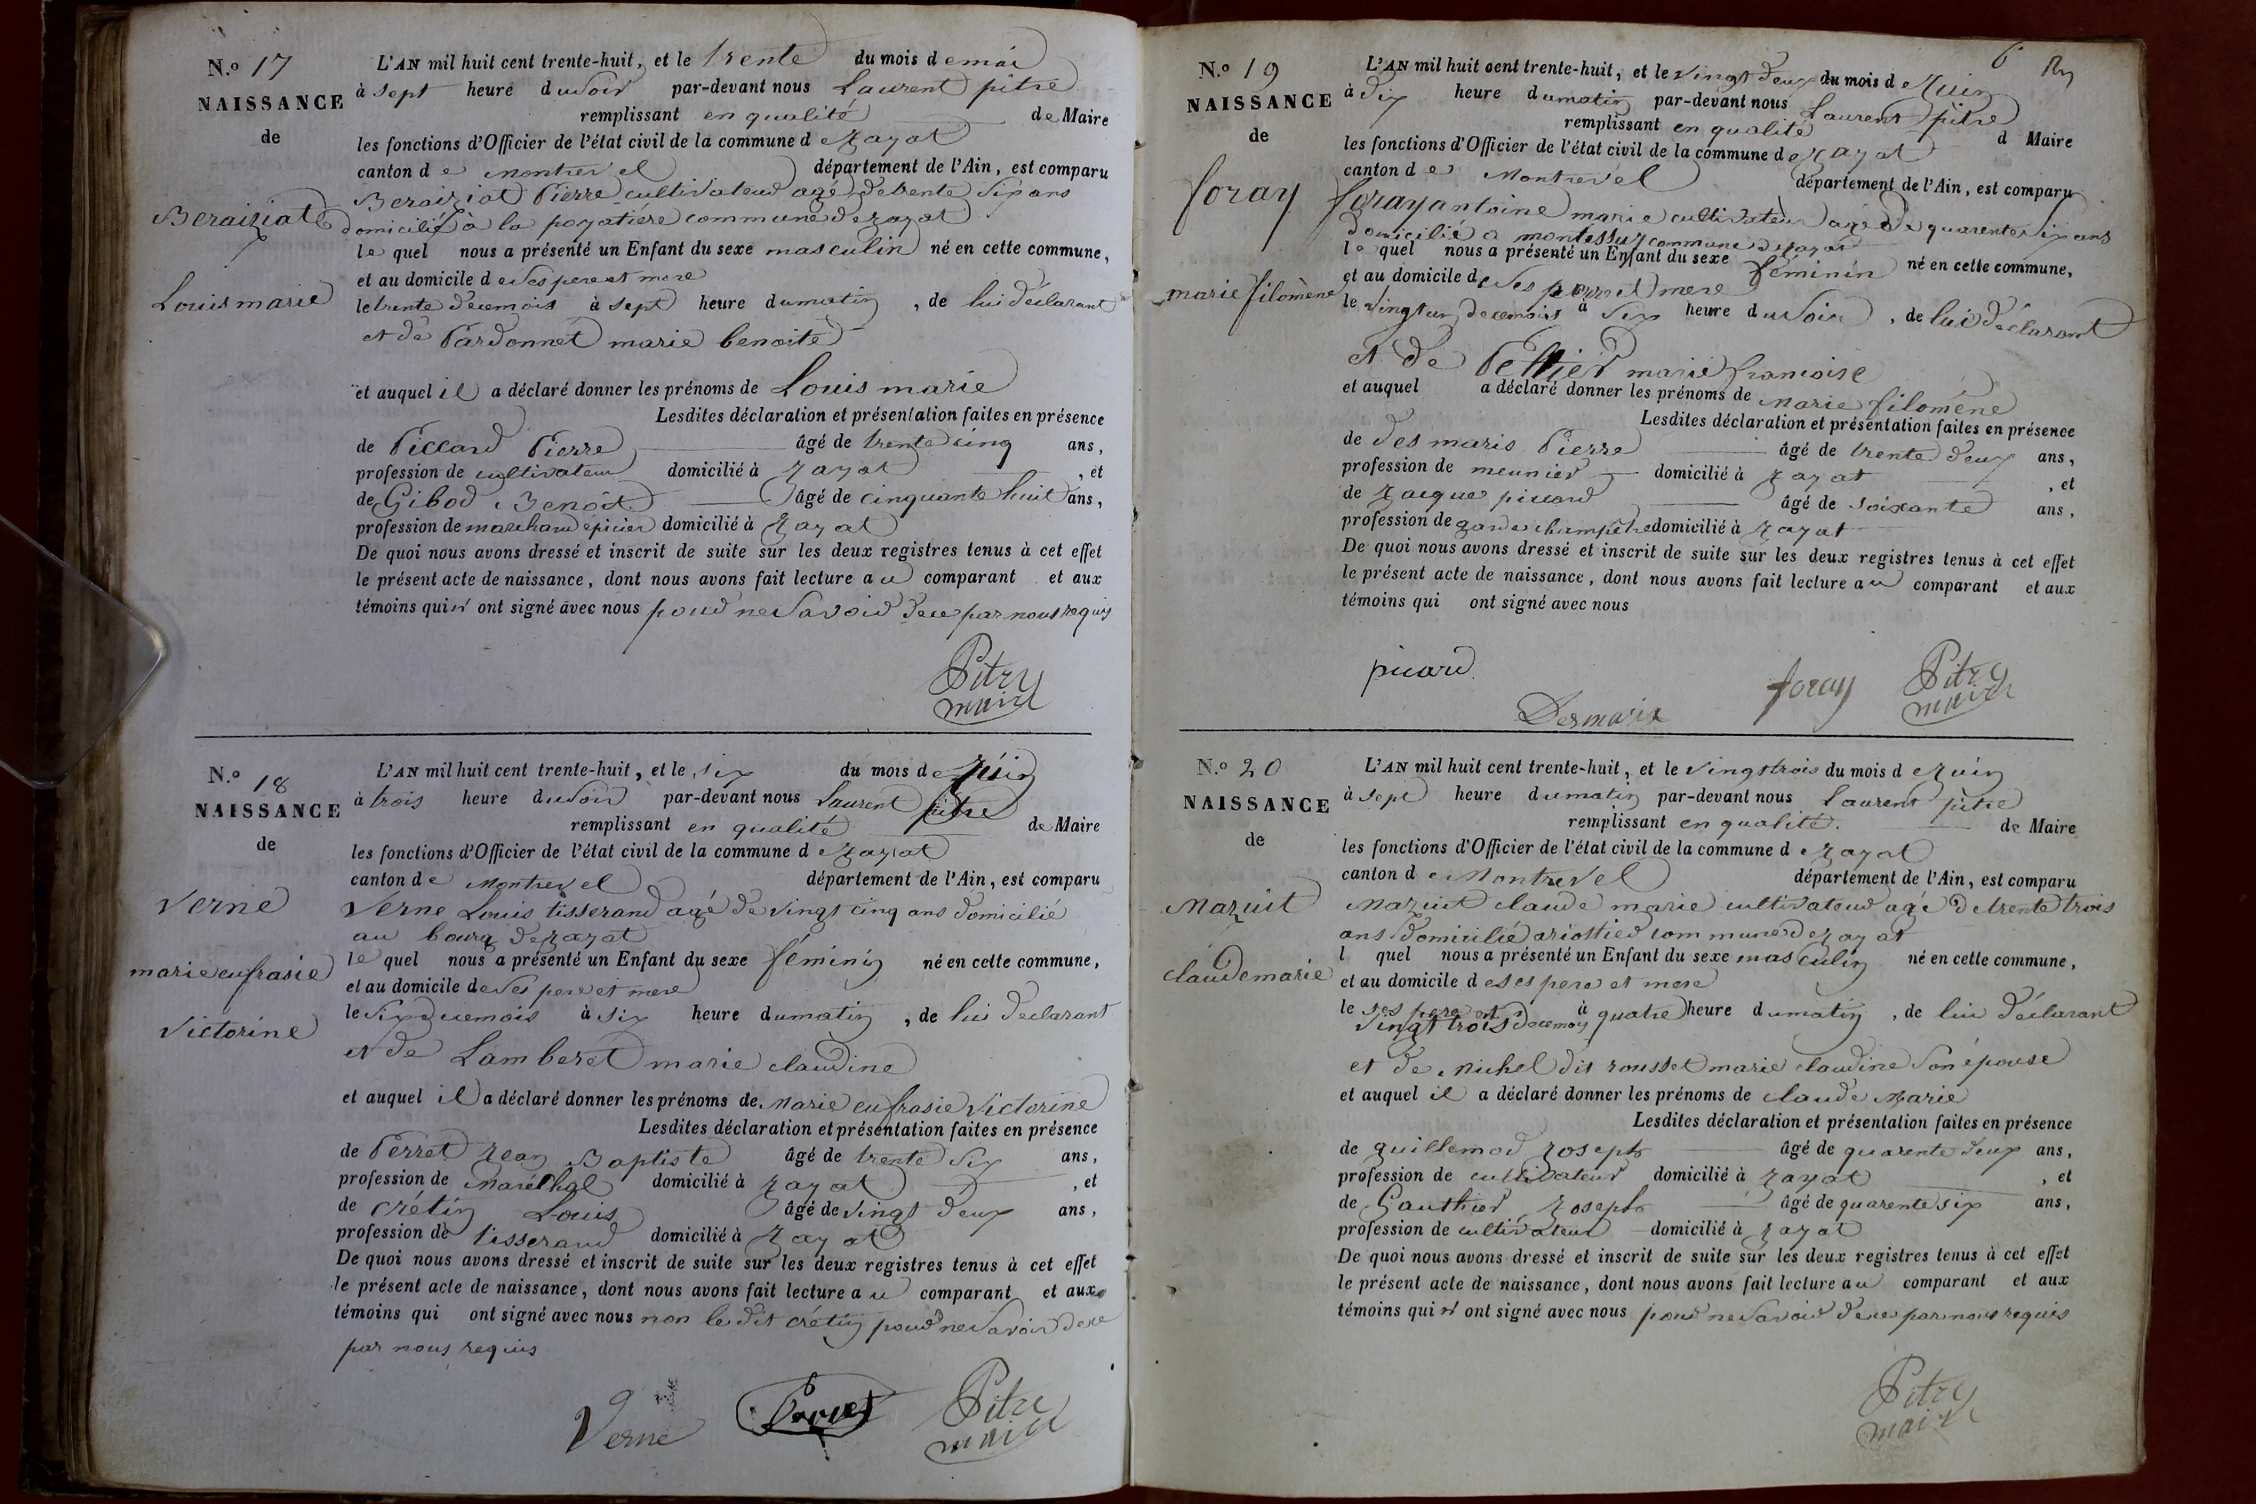 N.o 17
NAISSANCE
de
Beraiziat
Louis marie
L'AN mil huit cent trente-huit, et le trente du mois de mai
à sept heure du soir par-devant nous Laurent pitre
remplissant en qualité de Maire
les fonctions d'Officier de l'état civil de la commune de Jayat
canton de Montrevel département de l'Ain, est comparu
Beraiziat Pierre cultivateur agé de trente six ans
domicilié à la poyatiére commune de Jayat
le quel nous a présenté un Enfant du sexe masculin né en cette commune,
et au domicile de ses pere et mere
le trente de ce mois à sept heure du matin, de lui déclarant
et de Pardonnet marie benoite
et auquel il a déclaré donner les prénoms de Louis marie
Lesdites déclaration et présentation faites en présence
de Piccard Pierre âgé de trente cinq ans,
profession de cultivateur domicilié à Jayat, et
de Gibod Benoit âgé de cinquante huit ans,
profession de marchand épicier domicilié à Jayat
De quoi nous avons dressé et inscrit de suite sur les deux registres tenus à cet effet
le présent acte de naissance, dont nous avons fait lecture au comparant et aux
témoins qui n' ont signé avec nous pour ne savoir de ce par nous requis
Pitre
maire
N.o 18
NAISSANCE
de
Verne
marie eufrasie
Victorine
L'AN mil huit cent trente-huit, et le six du mois de Juin
à trois heure du soir par-devant nous Laurent pitre
remplissant en qualité de Maire
les fonctions d'Officier de l'état civil de la commune de Jayat
canton de Montrevel département de l'Ain, est comparu
Verne Louis tisserand agé de vingt cinq ans domicilié
au bourg de Jayat
le quel nous a présenté un Enfant du sexe féminin né en cette commune,
et au domicile de ses pere et mere
le six du ce mois à six heure du matin, de lui déclarant
et de Lamberet marie claudine
et auquel il a déclaré donner les prénoms de Marie eufrasie Victorine
Lesdites déclaration et présentation faites en présence
de Perret Jean Baptiste âgé de trente six ans,
profession de Maréchal domicilié à Jayat, et
de crétin Louis âgé de vingt deux ans,
profession de tisserand domicilié à Jayat
De quoi nous avons dressé et inscrit de suite sur les deux registres tenus à cet effet
le présent acte de naissance, dont nous avons fait lecture au comparant et aux
témoins qui ont signé avec nous non le dit crétin pour ne savoir de ce
par nous requis
Verne Perret Pitre
maire
6
N.o 19
NAISSANCE
de
foray
marie filomène
L'AN mil huit cent trente-huit, et le vingt deux du mois de Juin
à dix heure du matin par-devant nous Laurent pitre
remplissant en qualité d Maire
les fonctions d'Officier de l'état civil de la commune de Jayat
canton de Montrevel département de l'Ain, est comparu
foray antoine marie cultivateur agé de quarente six ans
domicilié a montessuy commune de Jayat
le quel nous a présenté un Enfant du sexe féminin né en cette commune,
et au domicile de ses pere et mere
le vingt un de ce mois à six heure du soir, de lui déclarant
et de Pellier marie francoise
et auquel a déclaré donner les prénoms de Marie filomène
Lesdites déclaration et présentation faites en présence
de des maris Pierre âgé de trente deux ans,
profession de meunier domicilié à Jayat, et
de Jacque piccard âgé de soixante ans,
profession de garde champêtre domicilié à Jayat
De quoi nous avons dressé et inscrit de suite sur les deux registres tenus à cet effet
le présent acte de naissance, dont nous avons fait lecture au comparant et aux
témoins qui ont signé avec nous
picard
Desmaris foray Pitre
maire
N.o 20
NAISSANCE
de
Mazuit
claude marie
L'AN mil huit cent trente-huit, et le vingt trois du mois de Juin
à sept heure du matin par-devant nous Laurent pitre
remplissant en qualité. de Maire
les fonctions d'Officier de l'état civil de la commune de Jayat
canton de Montrevel département de l'Ain, est comparu
Mazuit claude marie cultivateur agé de trente trois
ans domicilié a riottier commune de Jayat
l quel nous a présenté un Enfant du sexe masculin né en cette commune,
et au domicile de ses pere et mere
le ses pere et
vingt trois de ce mois à quatre heure du matin, de lui déclarant
et de Michel dit rousset marie claudine son épouse
et auquel il a déclaré donner les prénoms de claude Marie
Lesdites déclaration et présentation faites en présence
de guillemod Joseph âgé de quarente deux ans,
profession de cultivateur domicilié à Jayat, et
de Gauthier Joseph âgé de quarente six ans,
profession de cultivateur domicilié à Jayat
De quoi nous avons dressé et inscrit de suite sur les deux registres tenus à cet effet
le présent acte de naissance, dont nous avons fait lecture au comparant et aux
témoins qui n' ont signé avec nous pour ne savoir de ce par nous requis
Pitre
maire